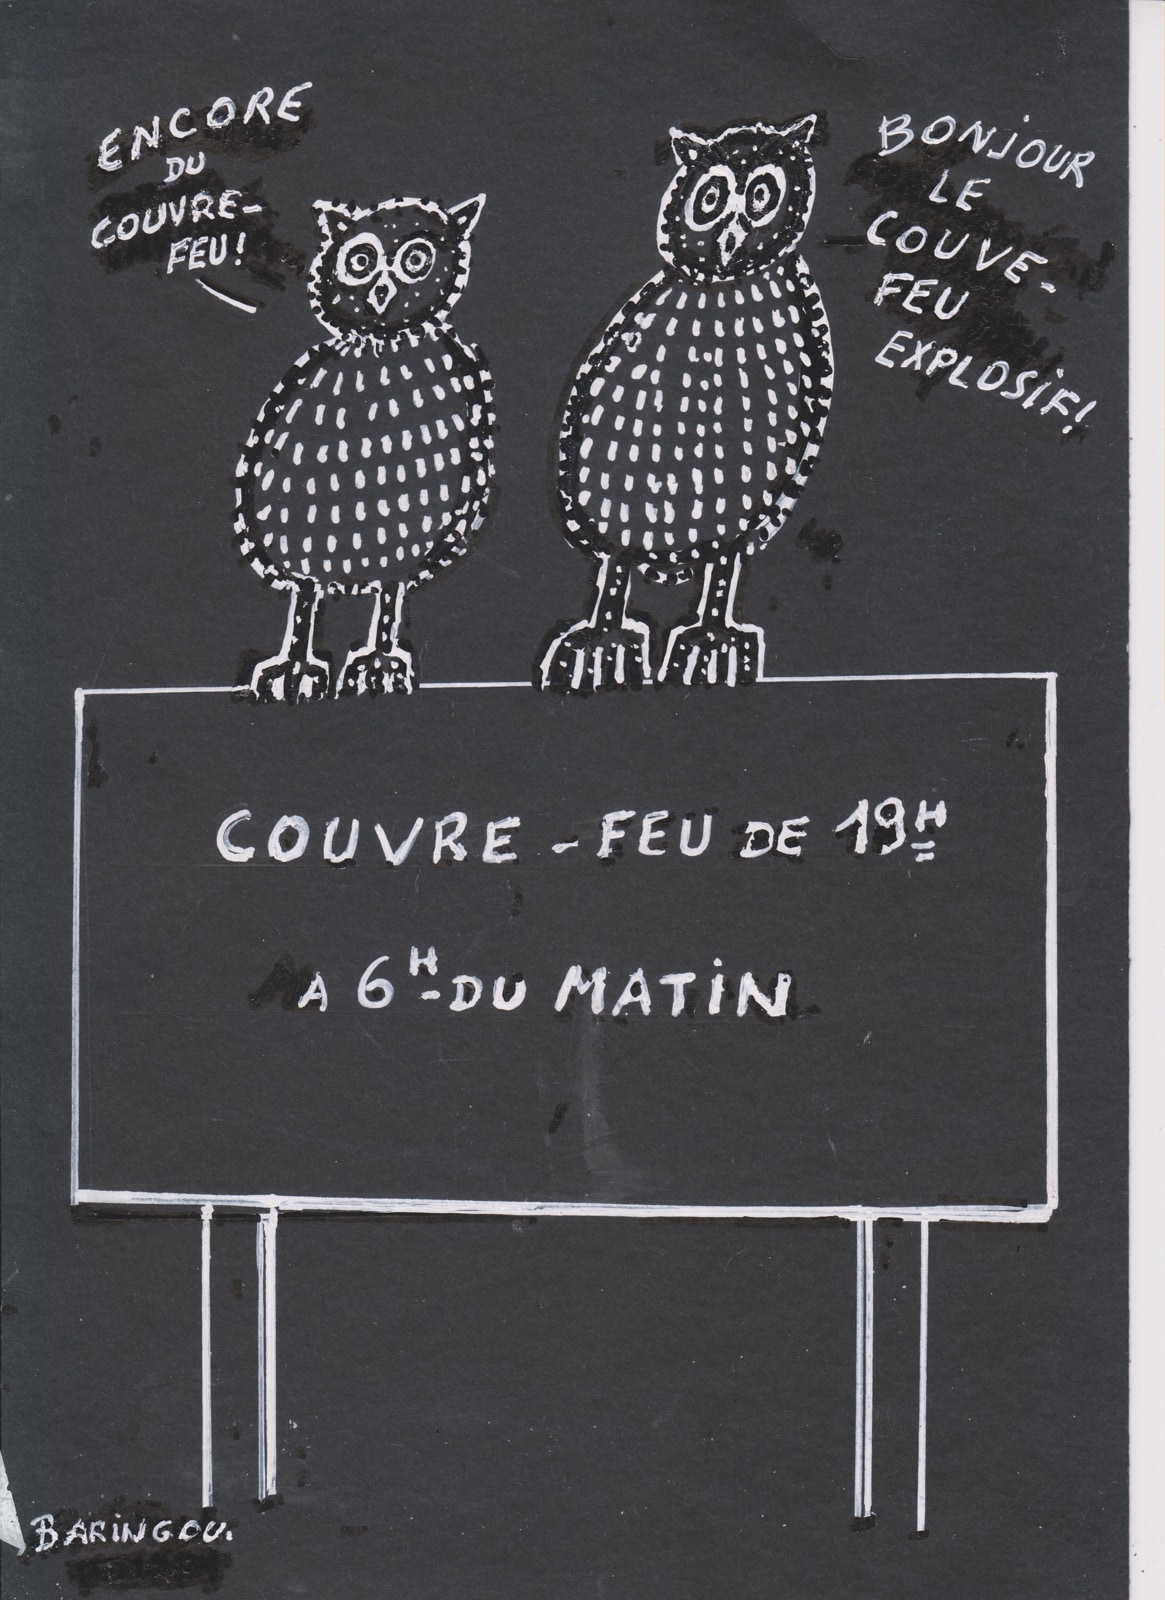 ENCORE
DU
COUVRE-
FEU!
BONJOUR
LE
COUVE-
FEU
EXPLOSIF!
COUVRE-FEU DE 19H
A 6H DU MATIN
BARINGOU.